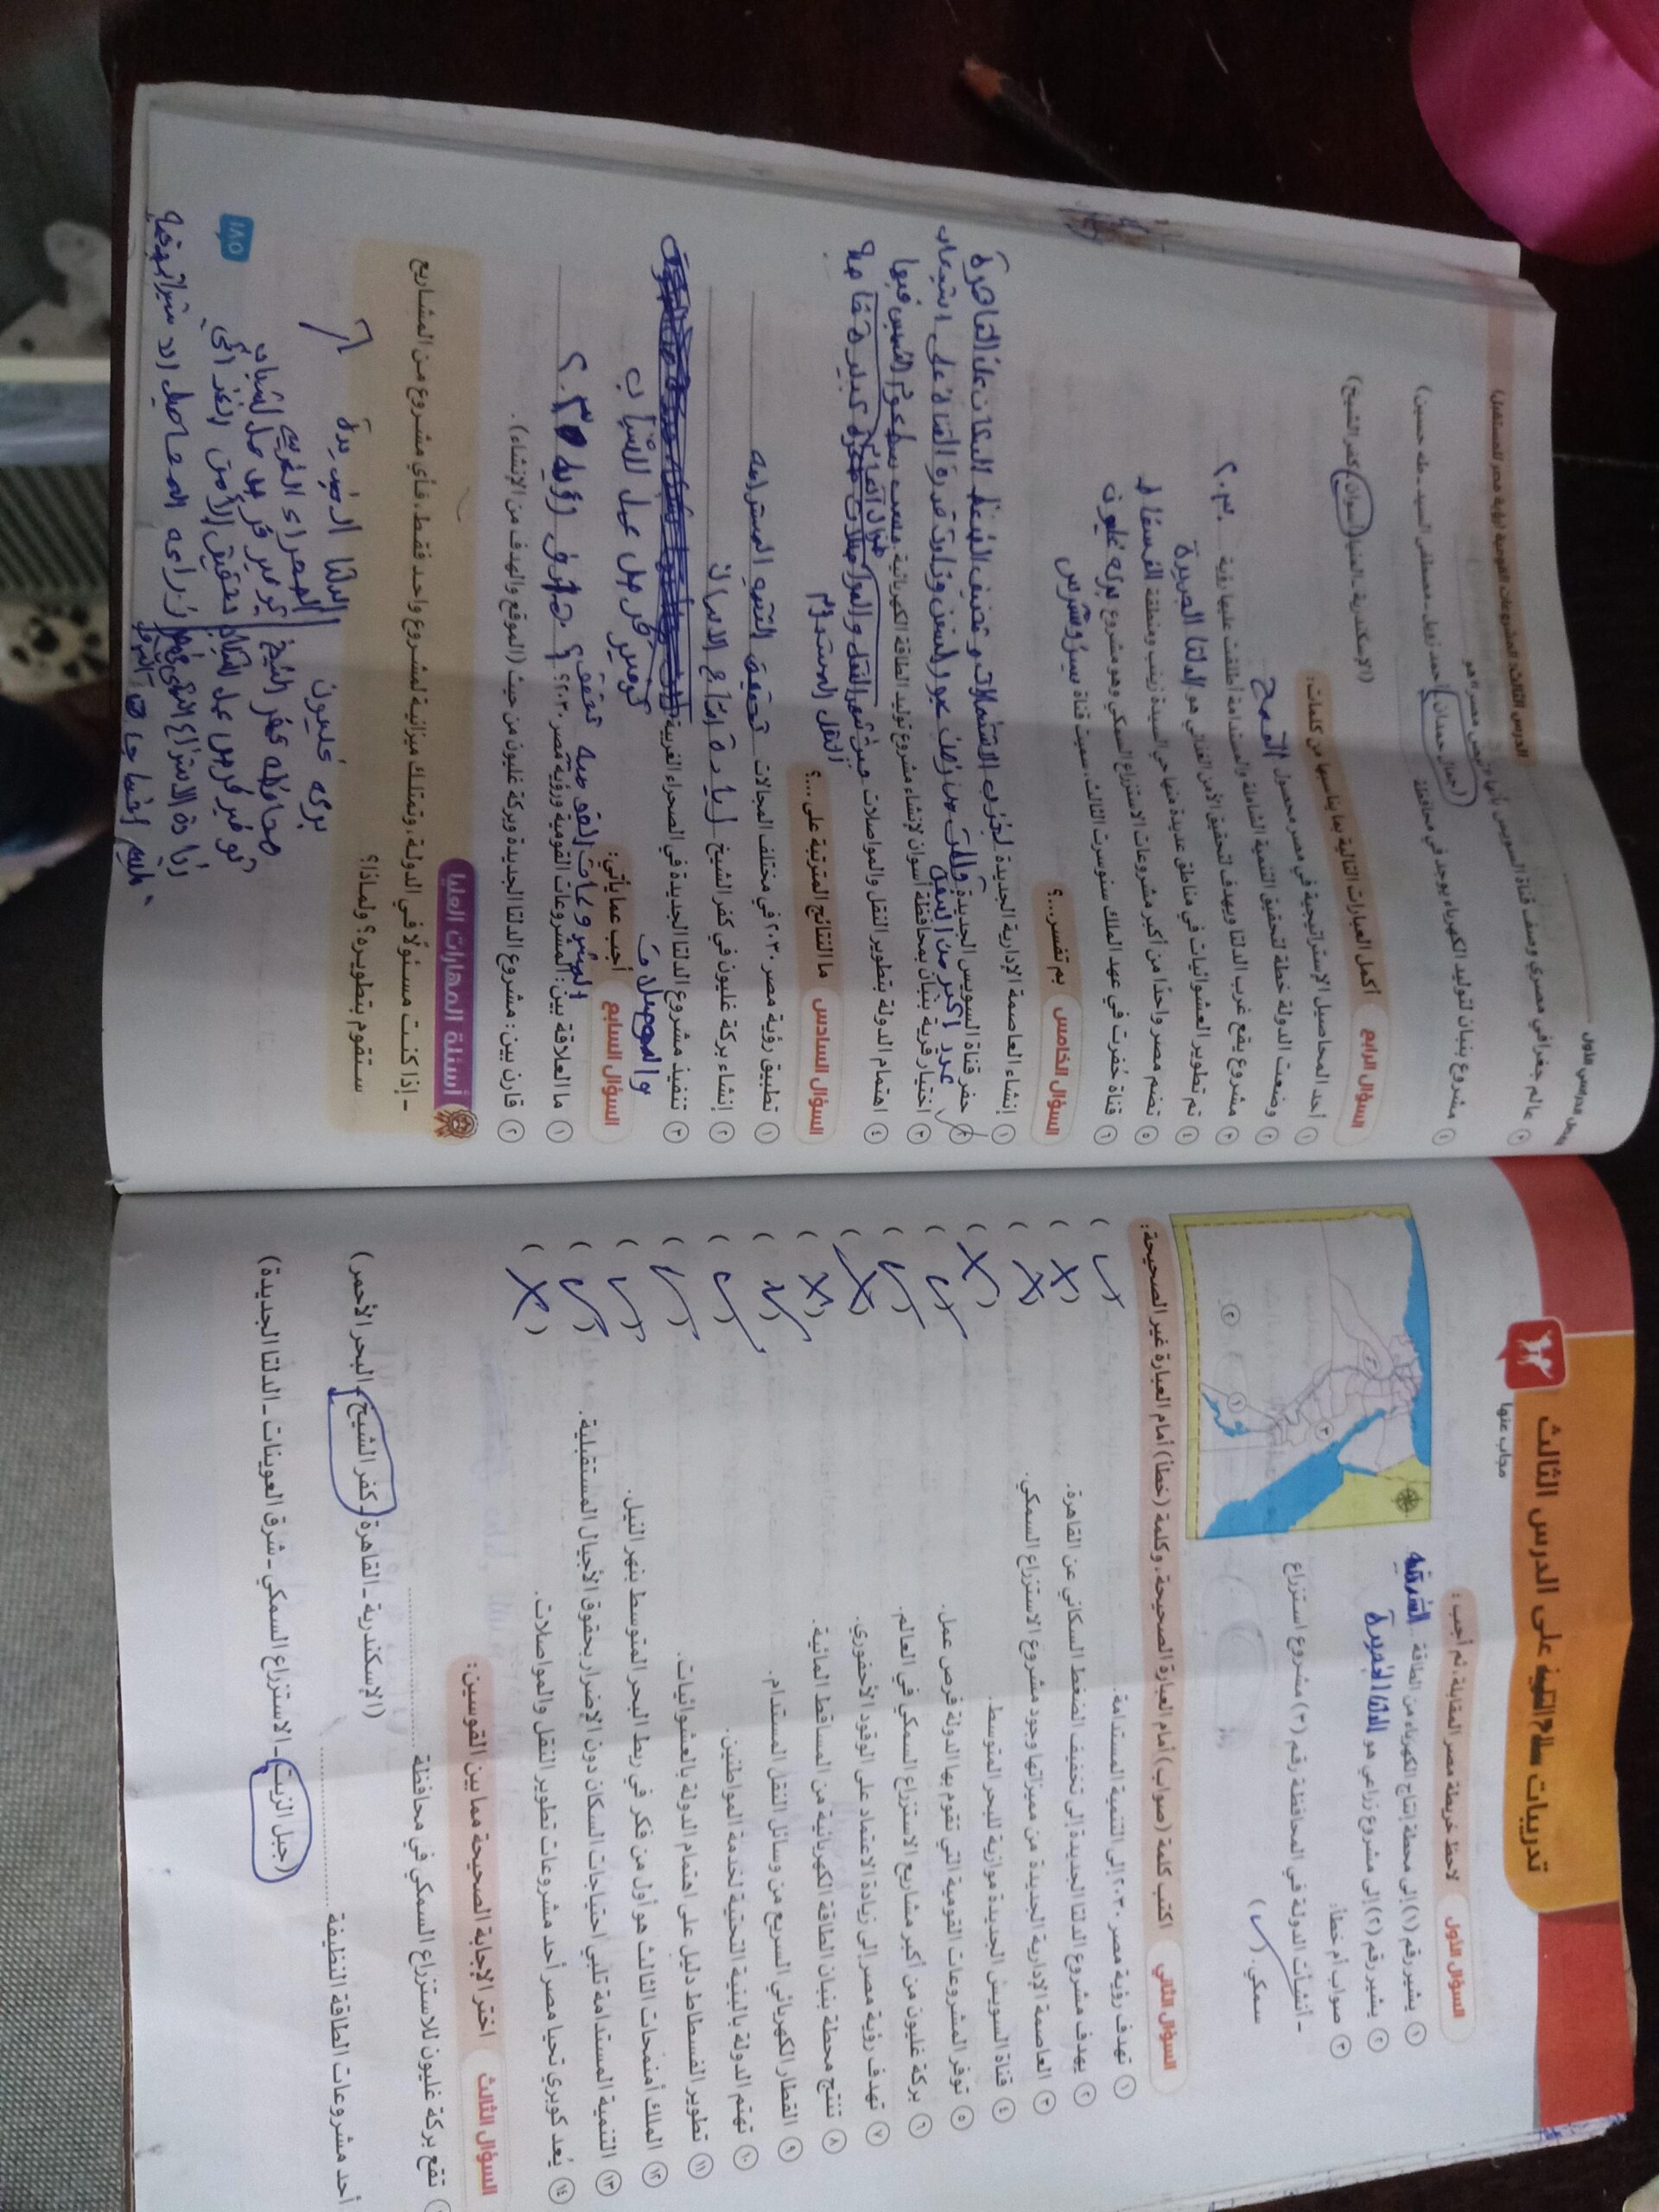 تدريبات سلاح التلميذ على الدرس الثالث
٢٢
مجاب عنها
السؤال الأول لاحظ خريطة مصر المقابلة، ثم أجب:
١ يشير رقم (١) إلى محطة إنتاج الكهرباء من الطاقة
٢ يشير رقم (٢) إلى مشروع زراعي هو الدلتا الجديدة
٣ صواب أم خطأ:
- أنشأت الدولة في المحافظة رقم (٣) مشروع استزراع
سمكي. (✓)
١
٢
٣
السؤال الثاني اكتب كلمة (صواب) أمام العبارة الصحيحة، وكلمة (خطأ) أمام العبارة غير الصحيحة:
١ تهدف رؤية مصر ٢٠٣٠ إلى التنمية المستدامة. (✓)
٢ يهدف مشروع الدلتا الجديدة إلى تخفيف الضغط السكاني عن القاهرة. (X)
٣ العاصمة الإدارية الجديدة من مميزاتها وجود مشروع الاستزراع السمكي. (X)
٤ قناة السويس الجديدة موازية للبحر المتوسط. (X)
٥ توفر المشروعات القومية التي تقوم بها الدولة فرص عمل. (✓)
٦ بركة غليون من أكبر مشاريع الاستزراع السمكي في العالم. (✓)
٧ تهدف رؤية مصر إلى زيادة الاعتماد على الوقود الأحفوري. (X)
٨ تنتج محطة بنبان الطاقة الكهربائية من المساقط المائية. (X)
٩ القطار الكهربائي السريع من وسائل النقل المستدام. (✓)
١٠ تهتم الدولة بالبنية التحتية لخدمة المواطنين. (✓)
١١ تطوير الفسطاط دليل على اهتمام الدولة بالعشوائيات. (✓)
١٢ الملك أمنمحات الثالث هو أول من فكر في ربط البحر المتوسط بنهر النيل. (✓)
١٣ التنمية المستدامة تلبي احتياجات السكان دون الإضرار بحقوق الأجيال المستقبلية. (✓)
١٤ يُعد كوبري تحيا مصر أحد مشروعات تطوير النقل والمواصلات. (X)
السؤال الثالث اختر الإجابة الصحيحة مما بين القوسين:
تقع بركة غليون للاستزراع السمكي في محافظة
(الإسكندرية - القاهرة - كفر الشيخ - البحر الأحمر)
أحد مشروعات الطاقة النظيفة
(جبل الزيت - الاستزراع السمكي - شرق العوينات - الدلتا الجديدة)
الدرس الثالث: المشروعات القومية (رؤية مصر للمستقبل)
٣ عالم جغرافي مصري وصف قناة السويس بأنها "نبض مصر" هو
(جمال حمدان - أحمد زويل - مصطفى السيد - طه حسين)
٤ مشروع بنبان لتوليد الكهرباء يوجد في محافظة
(الإسكندرية - المنيا - أسوان - كفر الشيخ)
السؤال الرابع أكمل العبارات التالية بما يناسبها من كلمات:
١ أحد المحاصيل الإستراتيجية في مصر محصول القمح
٢ وضعت الدولة خطة لتحقيق التنمية الشاملة والمستدامة أطلقت عليها رؤية ٢٠٣٠
٣ مشروع يقع غرب الدلتا ويهدف لتحقيق الأمن الغذائي هو الدلتا الجديدة
٤ تم تطوير العشوائيات في مناطق عديدة منها حي السيدة زينب ومنطقة الفسطاط
٥ تضم مصر واحدًا من أكبر مشروعات الاستزراع السمكي وهو مشروع بركة غليون
٦ قناة حُفرت في عهد الملك سنوسرت الثالث، سميت قناة سيزوستريس
السؤال الخامس بم تفسر...؟
١ إنشاء العاصمة الإدارية الجديدة
٢ حفر قناة السويس الجديدة
عدد أكبر من السفن
٣ اختيار قرية بنبان بمحافظة أسوان لإنشاء مشروع توليد الطاقة الكهربائية.
طوال العام
٤ اهتمام الدولة بتطوير النقل والمواصلات
النقل المستدام
السؤال السادس ما النتائج المترتبة على ...؟
١ تطبيق رؤية مصر ٢٠٣٠ في مختلف المجالات تحقيق التنمية المستدامة
٢ إنشاء بركة غليون في كفر الشيخ زيادة إنتاج الأسماك
٣ تنفيذ مشروع الدلتا الجديدة في الصحراء الغربية
توفير فرص عمل للشباب
السؤال السابع أجب عما يأتي:
١ ما العلاقة بين: المشروعات القومية ورؤية مصر ٢٠٣٠؟
المشروعات القومية تحقق رؤية ٢٠٣٠
٢ قارن بين: مشروع الدلتا الجديدة وبركة غليون من حيث (الموقع والهدف من الإنشاء).
أسئلة المهارات العليا
- إذا كنت مسئولًا في الدولة، وتمتلك ميزانية لمشروع واحد فقط، فأي مشروع من المشاريع
ستقوم بتطويره؟ ولماذا؟
بركة غليون الدلتا الجديدة
محافظة كفر الشيخ الصحراء الغربية
توفير فرص عمل للشباب توفير فرص عمل للشباب
زيادة الاستزراع السمكي تحقيق الأمن الغذائي
زراعة المحاصيل
١٨٥